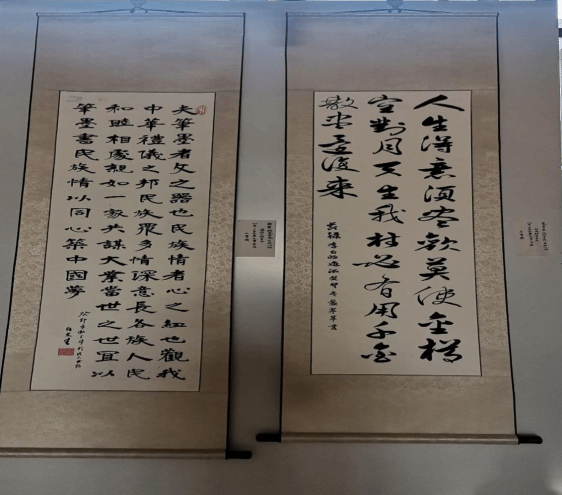 人生得意須盡歡莫使金樽
空對月天生我材必有用千金
散盡還復來
李白
夫筆墨者文之器也民族情者心之紅也觀我
中華禮儀之邦民族眾多情深意長各族人民
和睦相處親如一家共謀大業當世之世宜以
筆墨書民族情以同心築中國夢
癸卯年